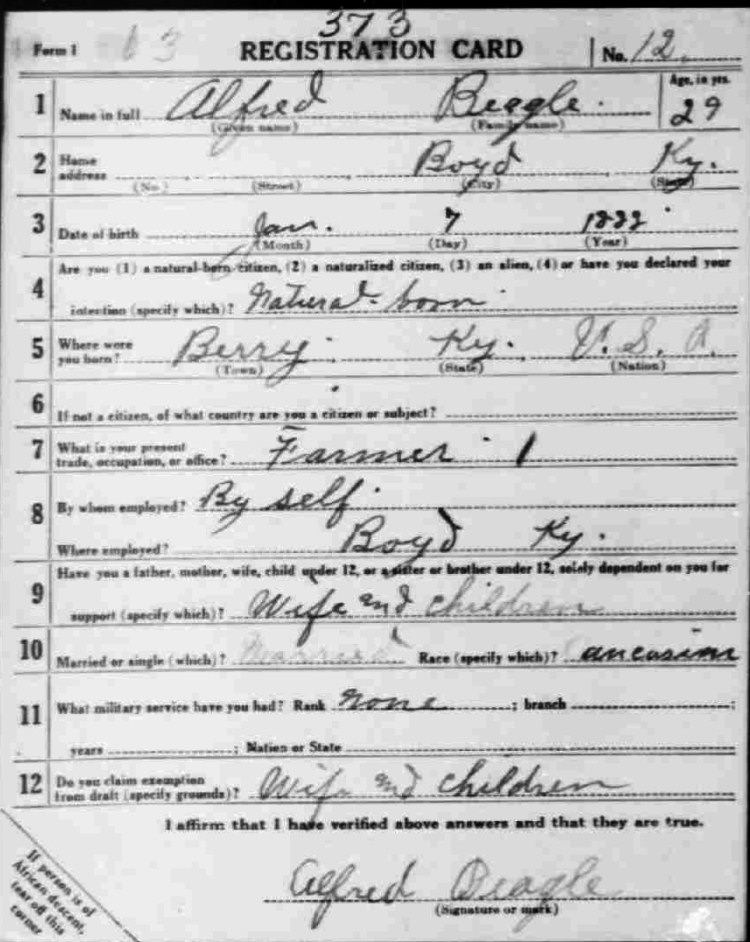 373
Form 1 13 REGISTRATION CARD No. 12
Age, in yrs.
1 Name in full Alfred Beagle. 29
(Given name) (Family name)
2 Home address Boyd Ky.
(No.) (Street) (City) (State)
3 Date of birth Jan. 7
(Month) (Day) (Year)
4 Are you (1) a natural-born citizen, (2) a naturalized citizen, (3) an alien, (4) or have you declared your
intention (specify which)? Natural-born
5 Where were you born? Berry Ky. U. S. A.
(Town) (State) (Nation)
6 If not a citizen, of what country are you a citizen or subject?
7 What is your present
trade, occupation, or office? Farmer 1
8 By whom employed? By self.
Where employed? Boyd Ky.
9 Have you a father, mother, wife, child under 12, or a sister or brother under 12, solely dependent on you for
support (specify which)? Wife and children
10 Married or single (which)? Married Race (specify which)? Caucasian
11 What military service have you had? Rank none ; branch ;
years ; Nation or State
12 Do you claim exemption
from draft (specify grounds)? Wife and children
I affirm that I have verified above answers and that they are true.
Alfred Beagle
(Signature or mark)
If person is of
African descent,
tear off this
corner